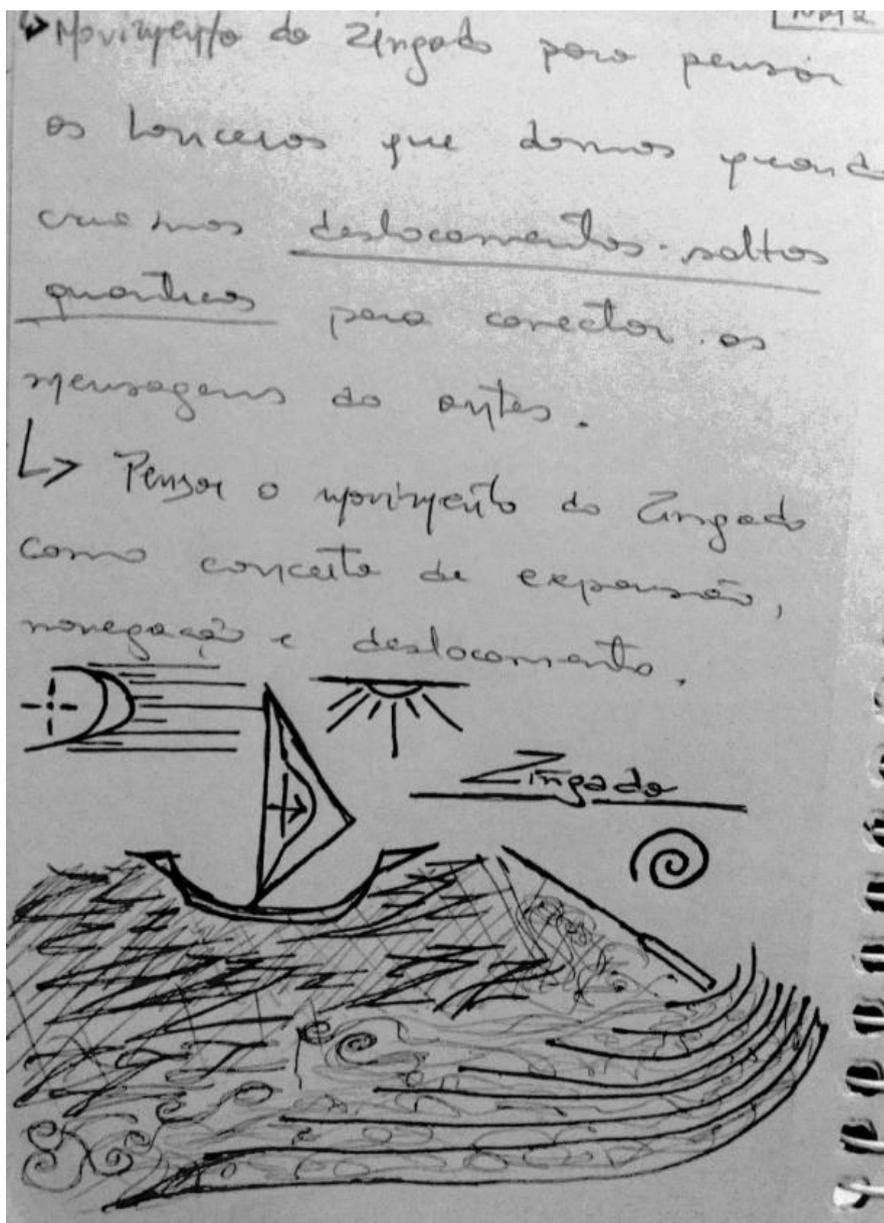 ↳ Movimento do Zingado para pensar
os lanceros que damos quando
criamos deslocamentos-saltos
quanticos para conectar as
mensagens do antes.
↳ Pensar o movimento do Zingado
como conceito de expansão,
navegação e deslocamento.
Zingado